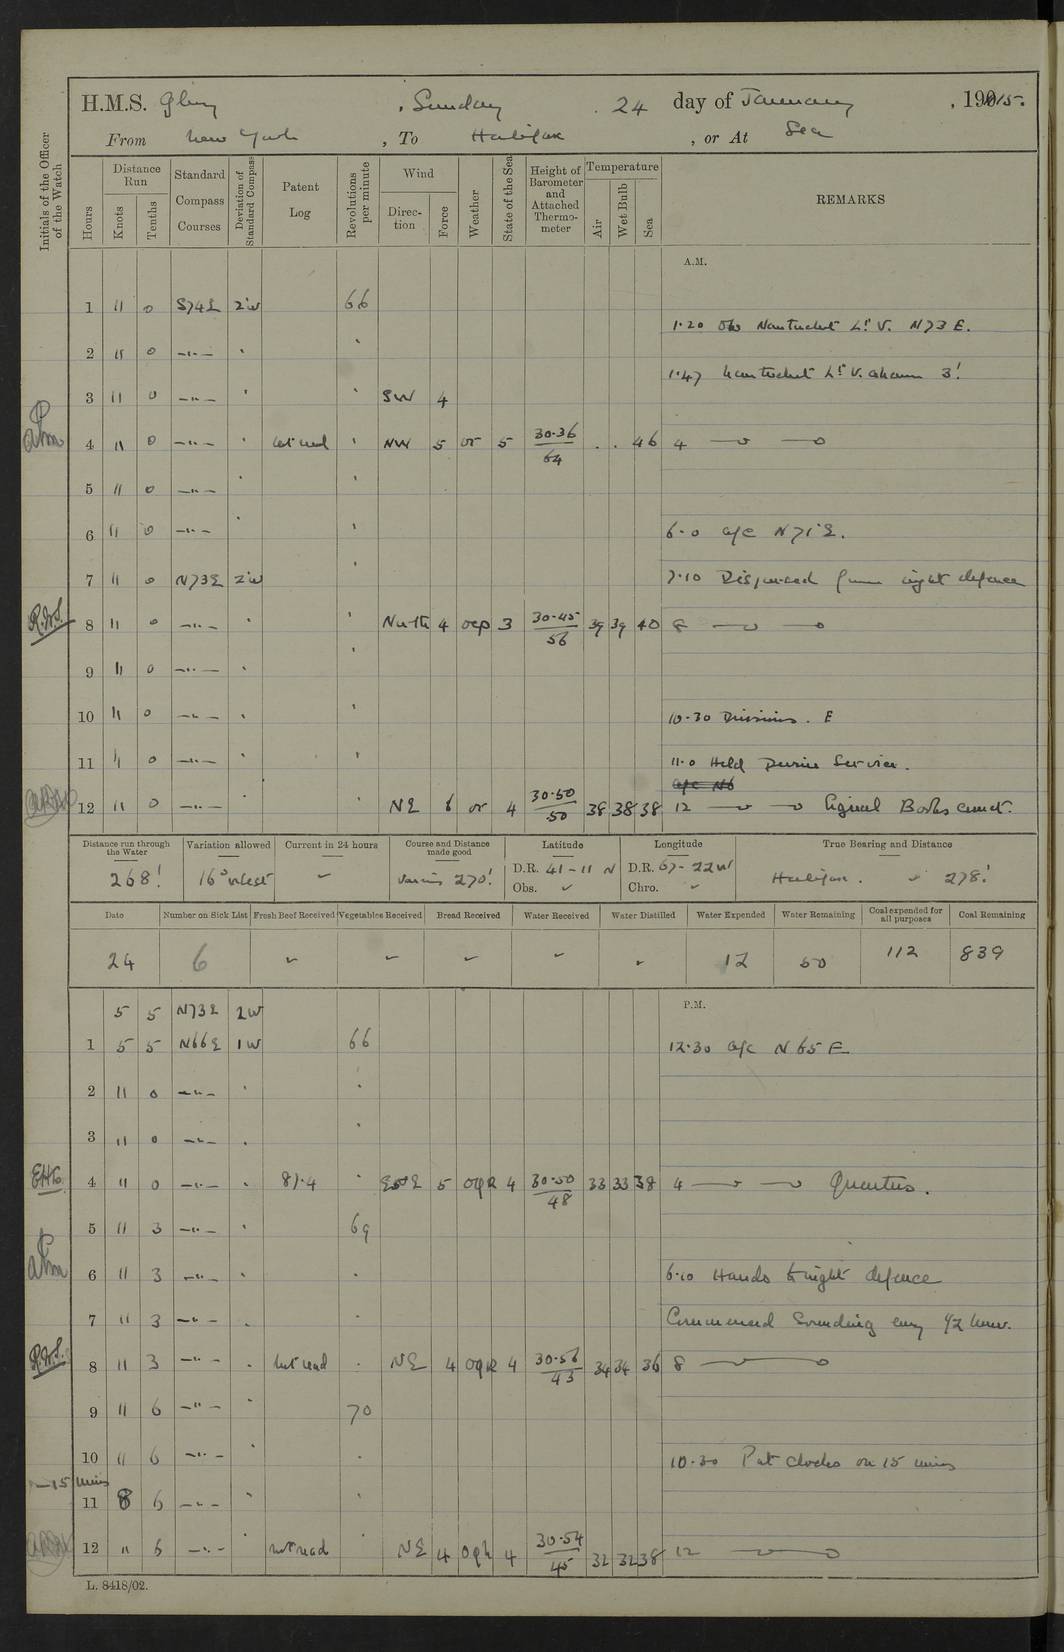 H.M.S. Glory, Sunday 24 day of January, 1915.
From New York, To Halifax, or At Sea
Initials of the Officer of the Watch
Hours
Distance Run
Knots
Tenths
Standard Compass Courses
Deviation of Standard Compass
Patent Log
Revolutions per minute
Wind
Direction
Force
Weather
State of the Sea
Height of Barometer and Attached Thermometer
Temperature
Air
Wet Bulb
Sea
REMARKS
A.M.
1 11 0 S74E 2W 66
1.20 Obs Nantucket Lt V. N73E.
2 11 0 —"— "
1.47 Nantucket Lt V. abeam 3'
3 11 0 —"— " " SW 4
4 11 0 —"— " not read " NW 5 or 5 30.36 64 . . 46 4
5 11 0 —"— " "
6 11 0 —"— " " 6.0 a/c N71°E.
7 11 0 N73E 2W " 7.10 Dispersed from night defence
R.W.S. 8 11 0 —"— " " North 4 ocp 3 30.45 56 39 39 40 8
9 11 0 —"— " "
10 11 0 —"— " " 10.30 Divisions. E
11 11 0 —"— " " 11.0 Held Divine Service.
a/c N6
12 11 0 —"— " " NE 6 or 4 30.50 50 38 38 38 12 Signal Books correct.
Distance run through the Water
268'
Variation allowed
16° West
Current in 24 hours
Course and Distance made good
Various 270'
Latitude
D.R. 41-11 N
Obs.
Longitude
D.R. 67-22W
Chro.
True Bearing and Distance
Halifax. 278'
Date Number on Sick List Fresh Beef Received Vegetables Received Bread Received Water Received Water Distilled Water Expended Water Remaining Coal expended for all purposes Coal Remaining
24 6 12 50 112 839
P.M.
5 5 N73E 2W
1 5 5 N66E 1W 66 12.30 a/c N65E
2 11 0 —"— " "
3 11 0 —"— . "
4 11 0 —"— . 87.4 " E 5 oqr 4 30.50 48 33 33 38 4 Quarters.
5 11 3 —"— " 69
6 11 3 —"— . . 6.10 Hands to night defence
7 11 3 —"— . . Commenced Sounding every 1/2 hour.
R.W.S. 8 11 3 —"— . not read . NE 4 oqr 4 30.56 43 34 34 36 8
9 11 6 —"— " 70
10 11 6 —"— " . 10.30 Put clocks on 15 mins
—15 mins
11 8 6 —"— " "
12 " 6 —"— " not read " NE 4 oqr 4 30.54 45 32 32 38 12
L. 8418/02.